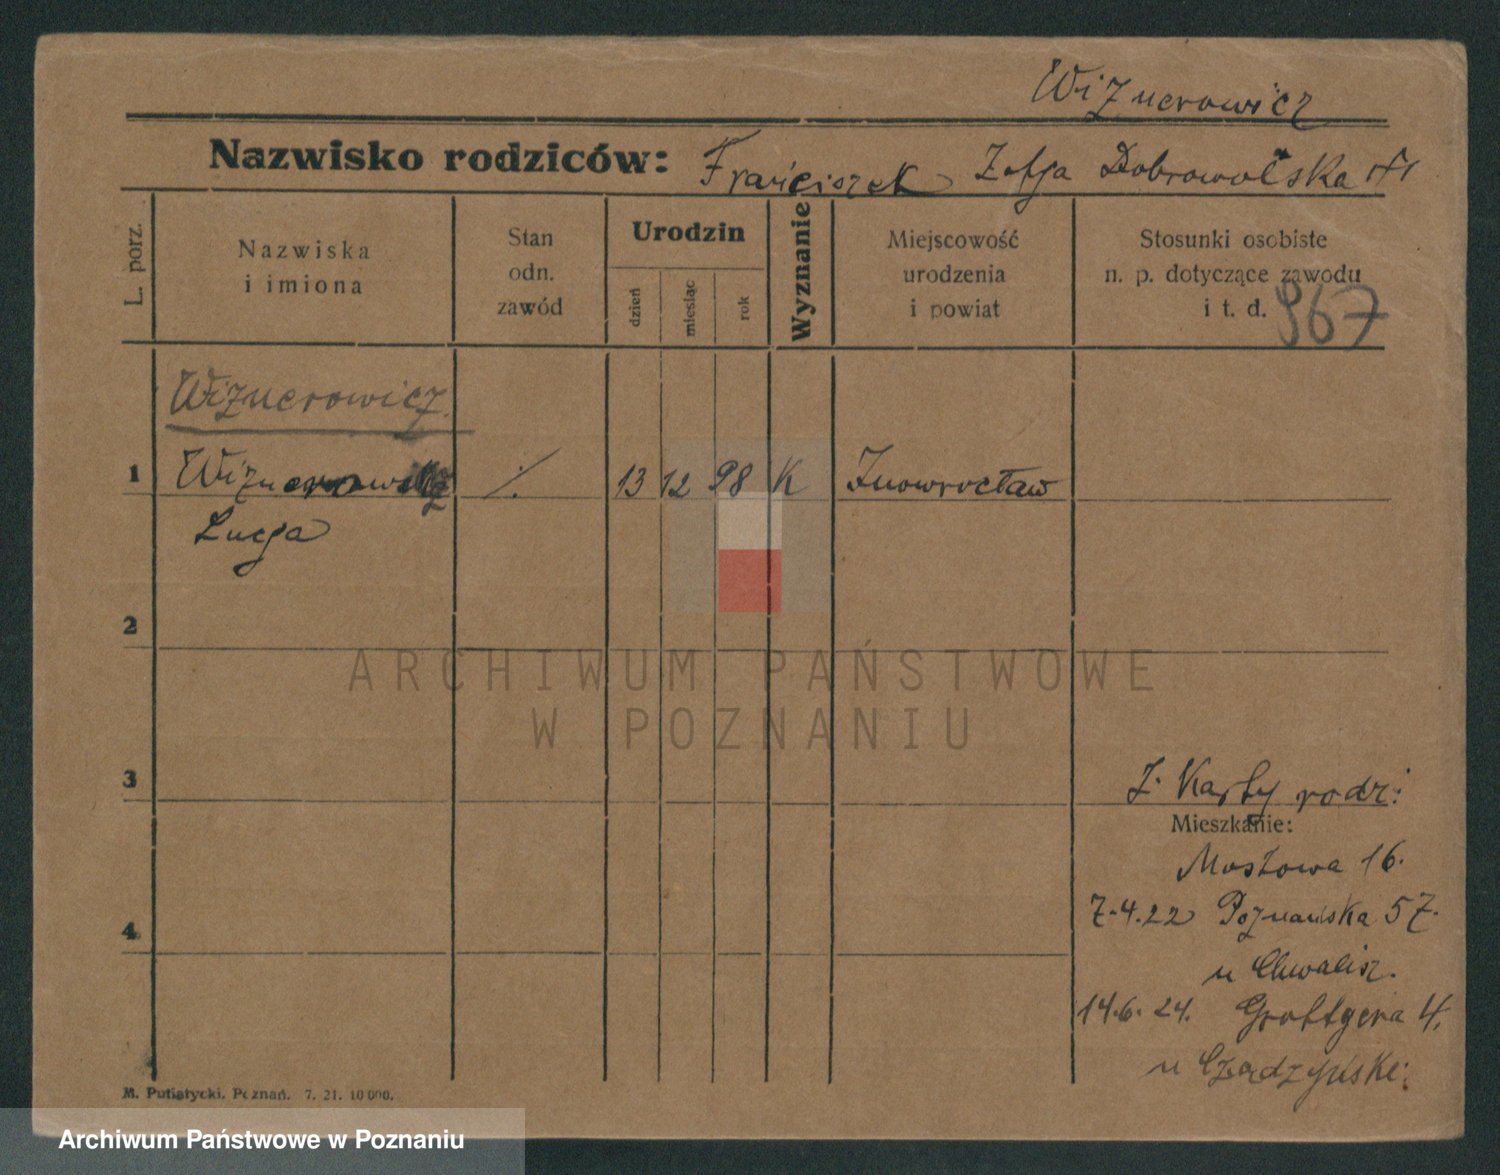 Wiznerowicz
Nazwisko rodziców: Franciszek Zofja Dobrowolska
L. porz.
Nazwiska
i imiona
Stan
odn.
zawód
Urodzin
dzień
miesiąc
rok
Wyznanie
Miejscowość
urodzenia
i powiat
Stosunki osobiste
n. p. dotyczące zawodu
i t. d.
967
Wiznerowicz
1 Wiznerowicz ·/. 13 12 98 K Inowrocław
Łucja
2
ARCHIWUM PAŃSTWOWE
W POZNANIU
3
Z. Karty rodz:
Mieszkanie:
Mostowa 16.
7.4.22 Poznańska 57.
4
u Chwalisz.
14.6.24. Grottgera 4.
u
M. Putiatycki, Poznań. 7. 21. 10 000.
Archiwum Państwowe w Poznaniu